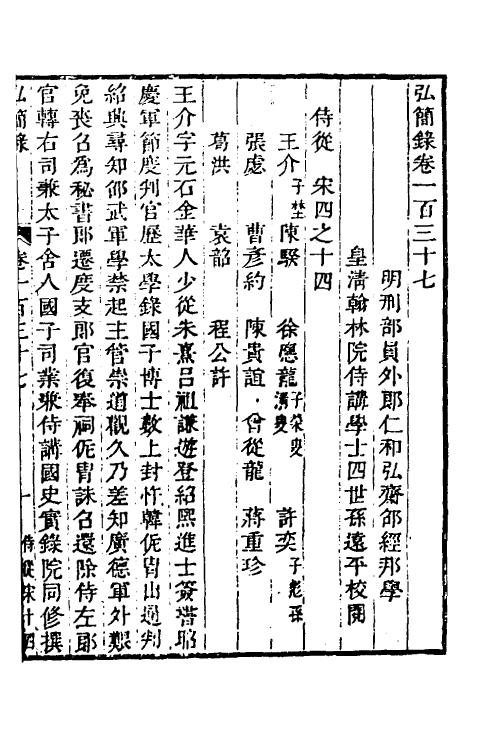 弘簡錄卷一百三十七
明刑部員外郎仁和弘齋邵經邦學
皇清翰林院侍講學士四世孫遠平校閱
侍從 宋四之十四
王介子埜 陳騤 徐應龍子榮叟 許奕子彪孫
張慮 曹彥約 陳貴誼 曾從龍 蔣重珍
葛洪 袁韶 程公許
王介字元石金華人少從朱熹呂祖謙遊登紹熙進士簽書昭
慶軍節度判官歷太學錄國子博士數上封忤韓侂胄出通判
紹興尋知邵武軍學禁起主管崇道觀久乃差知廣德軍外艱
免喪召為秘書郎遷度支郎官復奉祠侂胄誅召還除侍左郎
官轉右司兼太子舍人國子司業兼侍講國史實錄院同修撰
弘簡錄 卷一百三十七 一 侍從宋十四